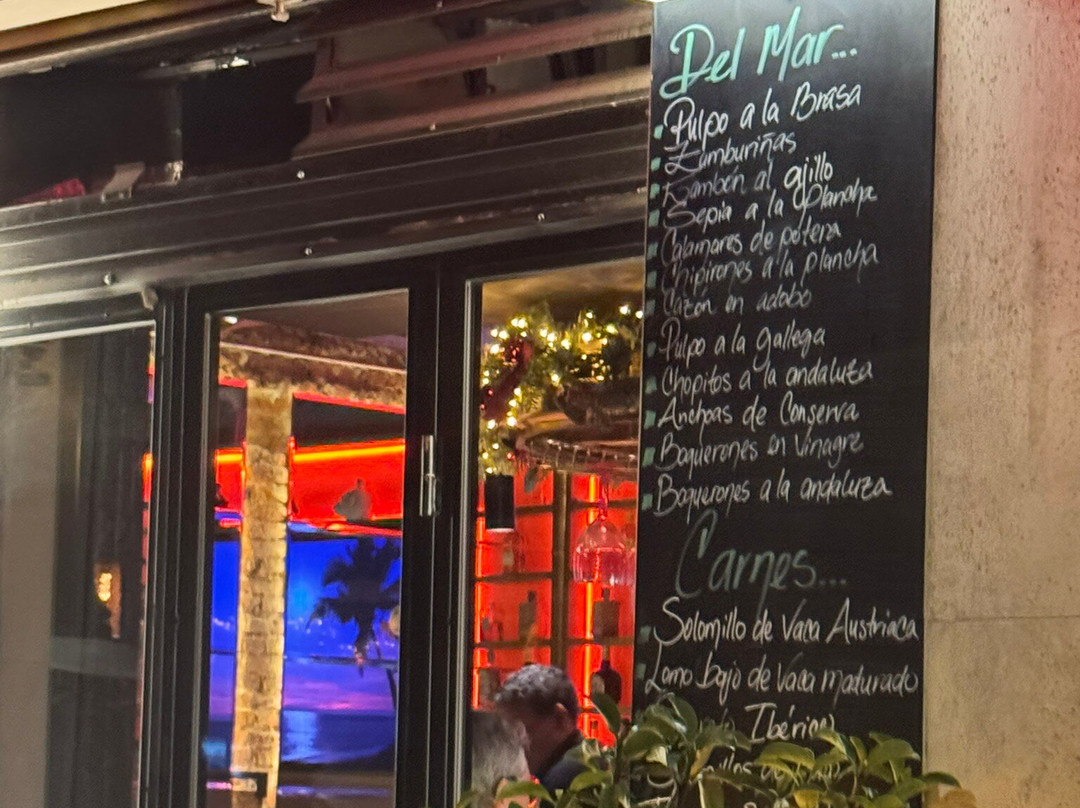 Del Mar...
Pulpo a la Brasa
Zamburiñas
Gambón al ajillo
Sepia a la Plancha
Calamares de potera
Chipirones a la plancha
Cazón en adobo
Pulpo a la gallega
Chopitos a la andaluza
Anchoas de Conserva
Boquerones en Vinagre
Boquerones a la andaluza
Carnes...
Solomillo de Vaca Austriaca
Lomo bajo de Vaca madurado